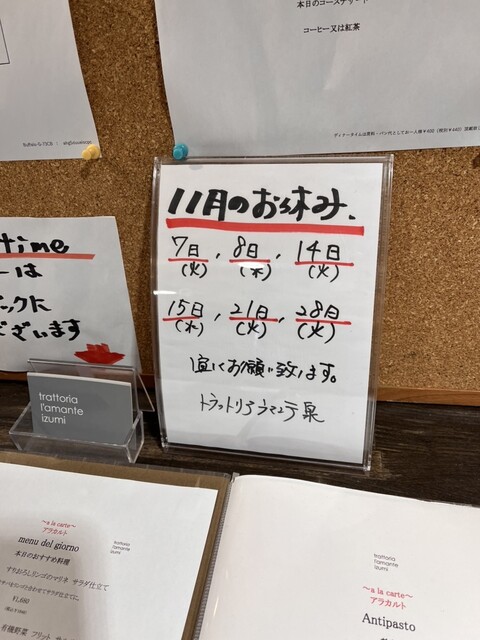 本日のコースデザート
コーヒー又は紅茶
11月のお休み.
7日, 8日, 14日
(火) (水) (火)
15日, 21日, 28日
(水) (火) (火)
宜しくお願い致します。
トラットリアラマンテ泉
time
ーは
ックに
ざいます
trattoria
l'amante
izumi
～a la carte～
アラカルト
menu del giorno
本日のおすすめ料理
trattoria
l'amante
izumi
すりおろしリンゴのマリネ サラダ仕立て
¥1,680
有機野菜 フリット
trattoria
l'amante
izumi
～a la carte～
アラカルト
Antipasto